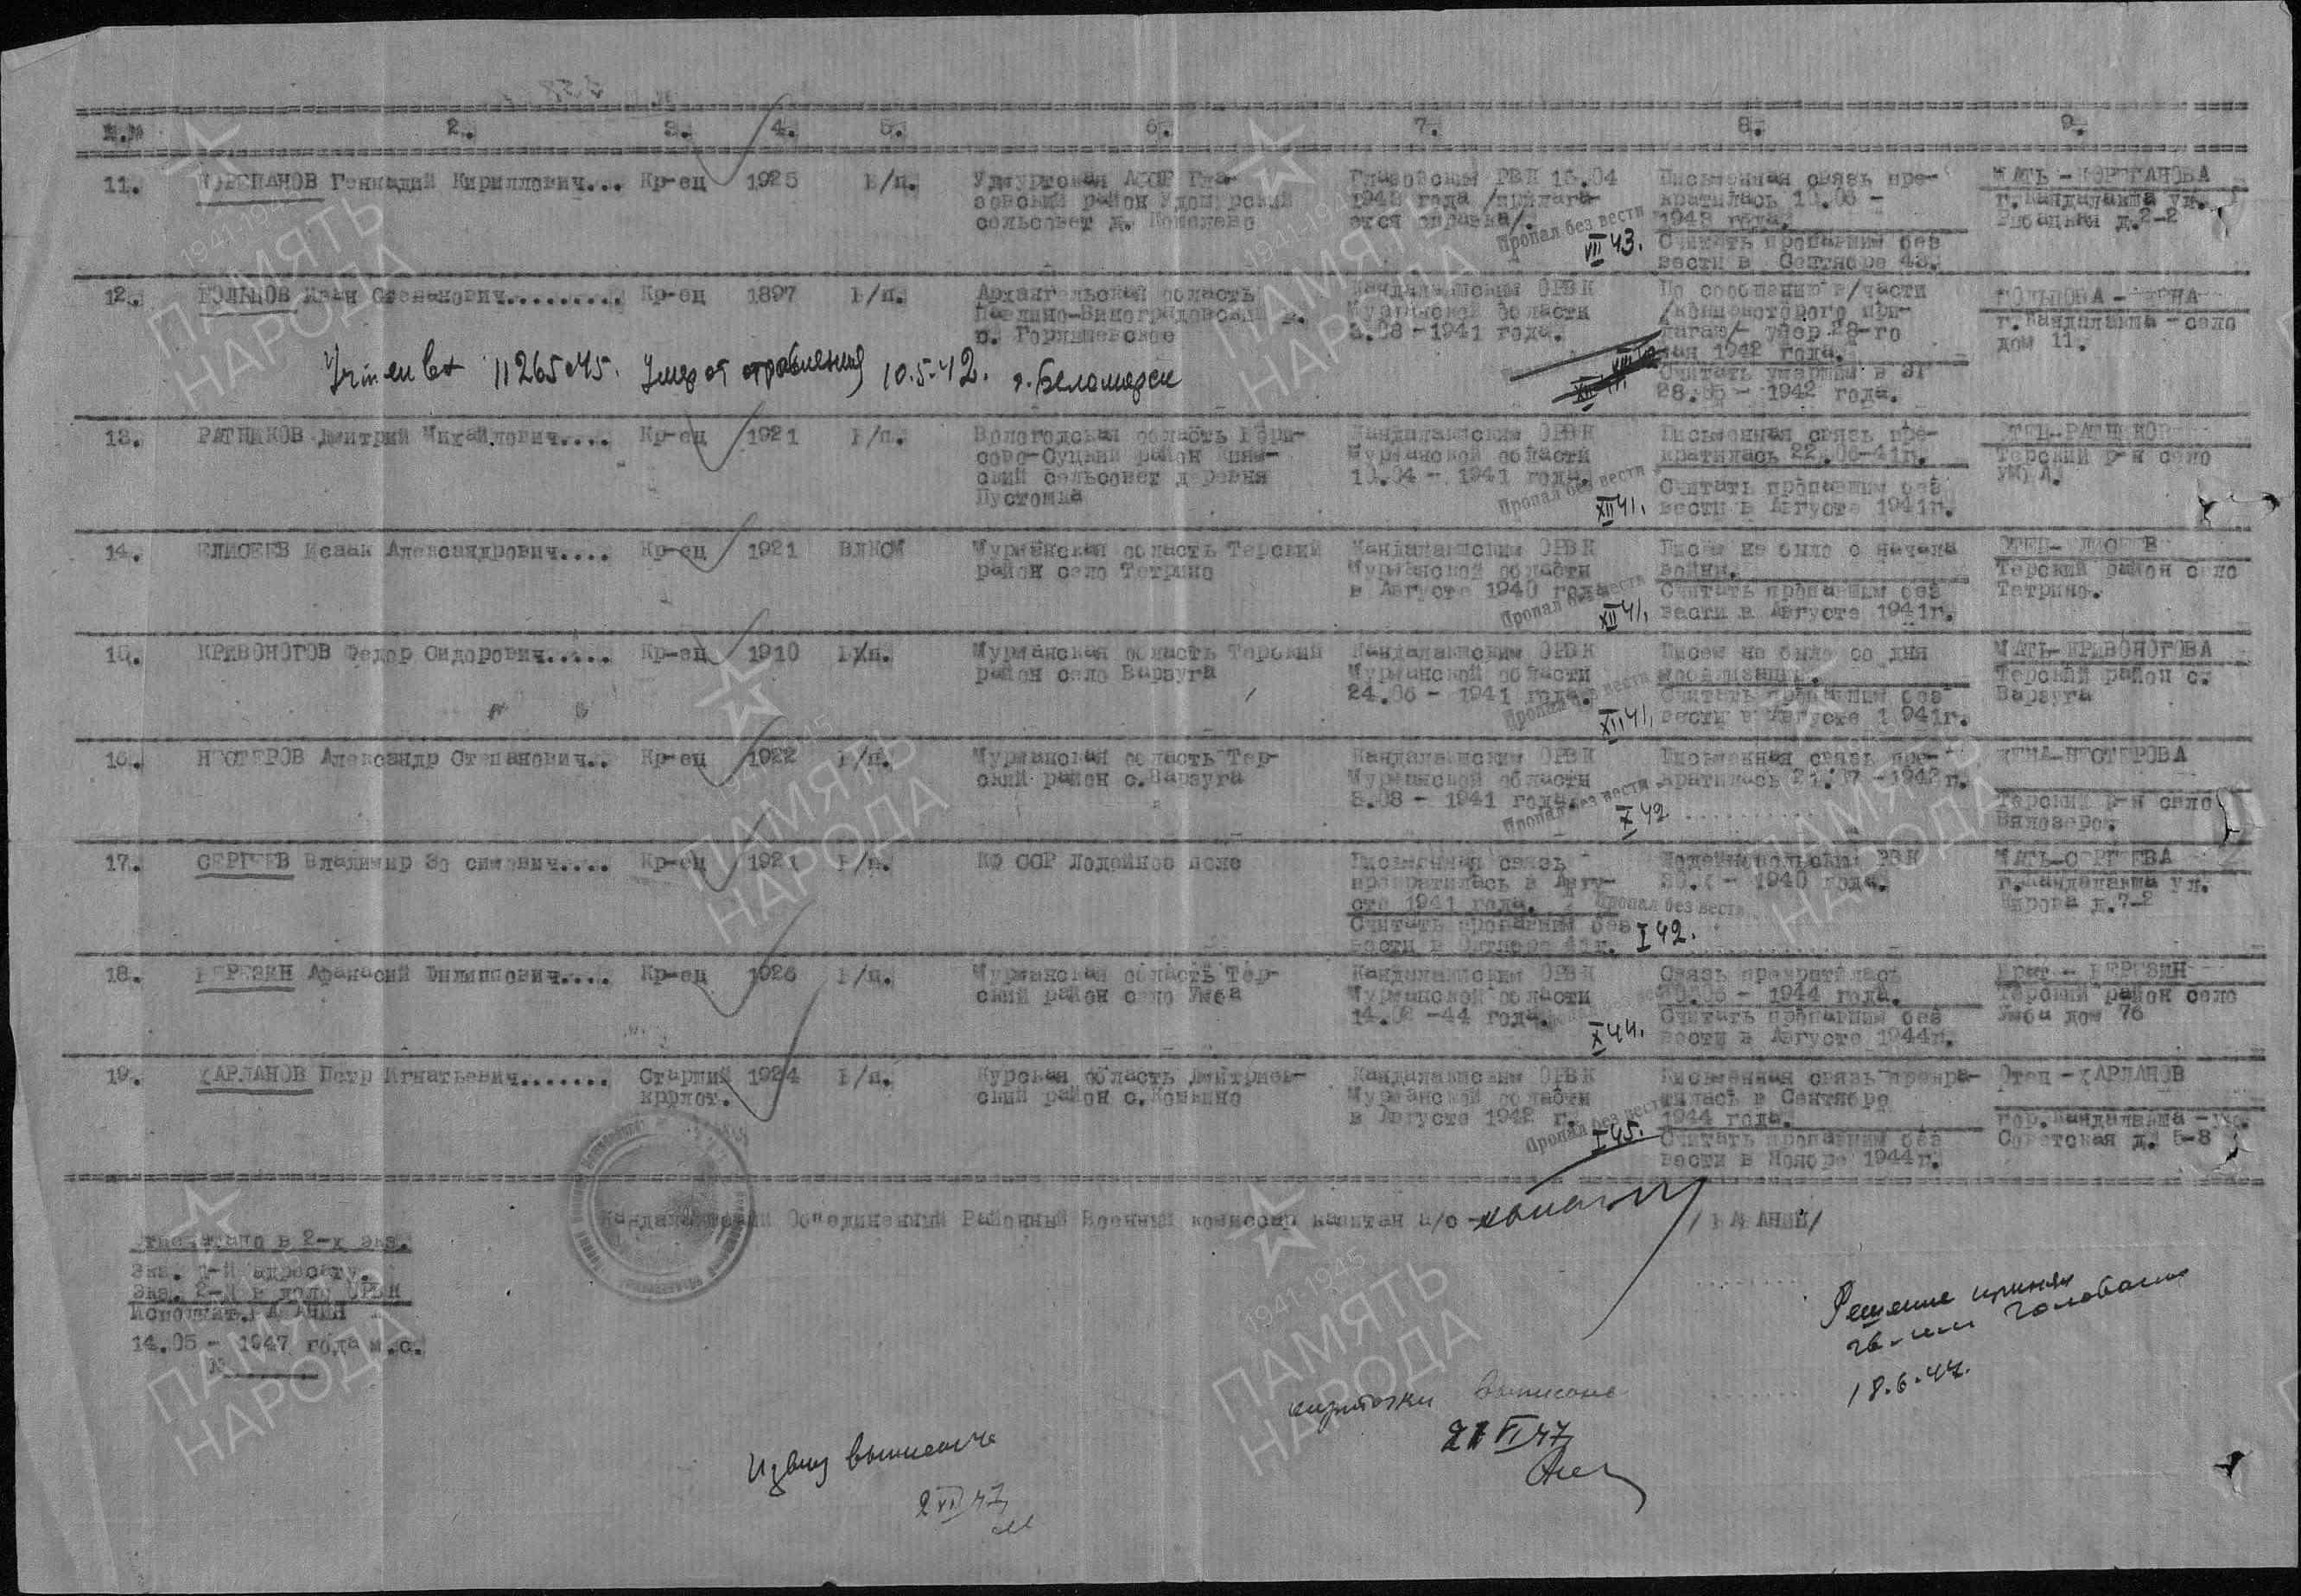 №.№ 2. 3. 4. 5. 6. 7. 8. 9.
11. КОРЕПАНОВ Геннадий Кириллович... Кр-ец 1925 Б/п. Удмуртская АССР Гла- Глазовским РВК 15.04 Письменная связь пре- МАТЬ - КОРЕПАНОВА
зовский район 1943 года /прилага- кратилась г. Кандалакша ул.
сельсовет д. ется справка/. 1943 года. Рыбацкая д. 2-2
Пропал без вести Считать пропавшим без
VII 43. вести в Сентябре 43.
12. Иван Степанович......... Кр-ец 1897 Б/п. Архангельская область Кандалакшским ОРВК По сообщению в/части ЖЕНА
Павлино-Виноградовский р. Мурманской области /копию которого при- г. Кандалакша - село
с. 8.08 - 1941 года. лагаю/ - умер 28-го дом 11.
мая 1942 года.
Учтен вх 11265 45. Умер от отравления 10.5.42. г. Беломорск Считать умершим в ЭГ
28.05 - 1942 года.
13. РАТНИКОВ Дмитрий Михайлович.... Кр-ец 1921 Б/п. Вологодская область Бори- Кандалакшским ОРВК Письменная связь пре- ОТЕЦ-РАТНИКОВ
сово-Судский район Мурманской области кратилась 22.06-41г. Терский р-н село
ский сельсовет деревня 10.04 - 1941 года. Считать пропавшим без УМБА.
Пустошка Пропал без вести XII 41. вести в Августе 1941г.
14. ЕЛИСЕЕВ Исаак Александрович.... Кр-ец 1921 ВЛКСМ Мурманская область Терский Кандалакшским ОРВК Писем не было с начала ОТЕЦ- ЕЛИСЕЕВ
район село Тетрино Мурманской области войны. Терский район село
в Августе 1940 года Считать пропавшим без Тетрино.
Пропал без вести XII 41. вести в Августе 1941г.
15. КРИВОНОГОВ Федор Сидорович...... Кр-ец 1910 Б/п. Мурманская область Терский Кандалакшским ОРВК Писем не было со дня МАТЬ-КРИВОНОГОВА
район село Варзуга Мурманской области мобилизации. Терский район с.
24.06 - 1941 года. Считать пропавшим без Варзуга
Пропал без вести XII 41. вести в Августе 1941г.
16. НЕСТЕРОВ Александр Степанович.. Кр-ец 1922 Б/п. Мурманская область Тер- Кандалакшским ОРВК Письменная связь пре- ЖЕНА-НЕСТЕРОВА
ский район с. Варзуга Мурманской области кратилась 21.07 - 1942 г.
8.08 - 1941 года. Терский р-н село
Пропал без вести X 42 Вялозеро.
17. СЕРГЕЕВ Владимир Зосимович.... Кр-ец 1921 Б/п. КФ ССР Лодейное поле Письменная связь Лодейнопольским РВК МАТЬ-СЕРГЕЕВА
прекратилась в Авгу- - 1940 года. г. Кандалакша ул.
сте 1941 года. Пропал без вести Кирова д. 7-2
Считать пропавшим без
вести в Октябре 41г. I 42.
18. БЕРЕЗИН Афанасий Филиппович.... Кр-ец 1926 Б/п. Мурманская область Тер- Кандалакшским ОРВК Связь прекратилась Брат - БЕРЕЗИН
ский район село Умба Мурманской области - 1944 года. Терский район село
-44 года. Считать пропавшим без Умба дом 76
X 44. вести в Августе 1944г.
19. ХАРЛАНОВ Петр Игнатьевич....... Старший 1924 Б/п. Курская область Дмитриев- Кандалакшским ОРВК Письменная связь прекра- Отец - ХАРЛАНОВ
крфлот. ский район Мурманской области тилась в Сентябре
в Августе 1942 г. 1944 года. гор. Кандалакша - ул.
Пропал без вести I 45. Считать пропавшим без Советская д. 5-8
вести в Ноябре 1944г.
Кандалакшский Объединенный Районный Военный комиссар капитан а/с
Отпечатано в 2-х экз.
Экз. 1-й адресату.
Экз. 2-й в дело ОРВК
14.05 - 1947 года м.с.
Решение принял
18.6.47.
карточки выписаны
21 VI 47
Извещ выписаны
2 VI 47
1941-1945
ПАМЯТЬ
НАРОДА